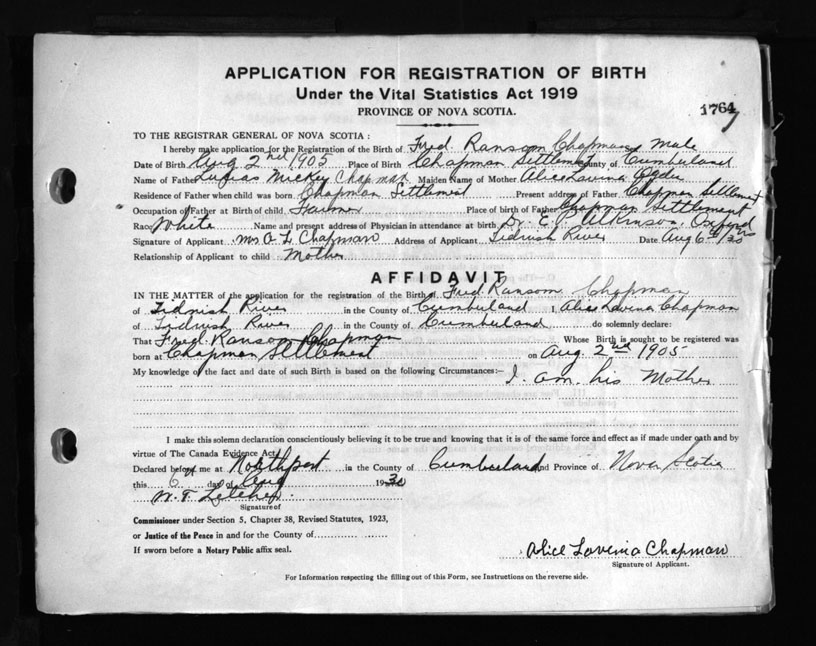 APPLICATION FOR REGISTRATION OF BIRTH
Under the Vital Statistics Act 1919
PROVINCE OF NOVA SCOTIA.
1764
7
TO THE REGISTRAR GENERAL OF NOVA SCOTIA :
I hereby make application for the Registration of the Birth of Fred. Ransom Chapman Male
Date of Birth Aug 2nd 1905 Place of Birth Chapman Settlement County of Cumberland
Name of Father Mickey Chapman Maiden Name of Mother Alice Lavinia
Residence of Father when child was born Chapman Settlement Present address of Father Chapman Settlement
Occupation of Father at Birth of child Farmer Place of birth of Father Chapman Settlement
Race White Name and present address of Physician in attendance at birth Dr. E. Atkinson, Oxford NS
Signature of Applicant Mrs A L Chapman Address of Applicant Tidnish River Date Aug 6th/30
Relationship of Applicant to child Mother
AFFIDAVIT
IN THE MATTER of the application for the registration of the Birth of Fred Ransom Chapman
of Tidnish River in the County of Cumberland I, Alice Lavina Chapman
of Tidnish River in the County of Cumberland do solemnly declare:
That Fred. Ransom Chapman Whose Birth is sought to be registered was
born at Chapman Settlement on Aug. 2nd 1905
My knowledge of the fact and date of such Birth is based on the following Circumstances:— I am his Mother
I make this solemn declaration conscientiously believing it to be true and knowing that it is of the same force and effect as if made under oath and by
virtue of The Canada Evidence Act.
Declared before me at Northport in the County of Cumberland and Province of Nova Scotia
this 6th day of Aug 1930
W. T.
Signature of
Commissioner under Section 5, Chapter 38, Revised Statutes, 1923,
or Justice of the Peace in and for the County of
If sworn before a Notary Public affix seal.
Alice Lavenia Chapman
Signature of Applicant.
For Information respecting the filling out of this Form, see Instructions on the reverse side.